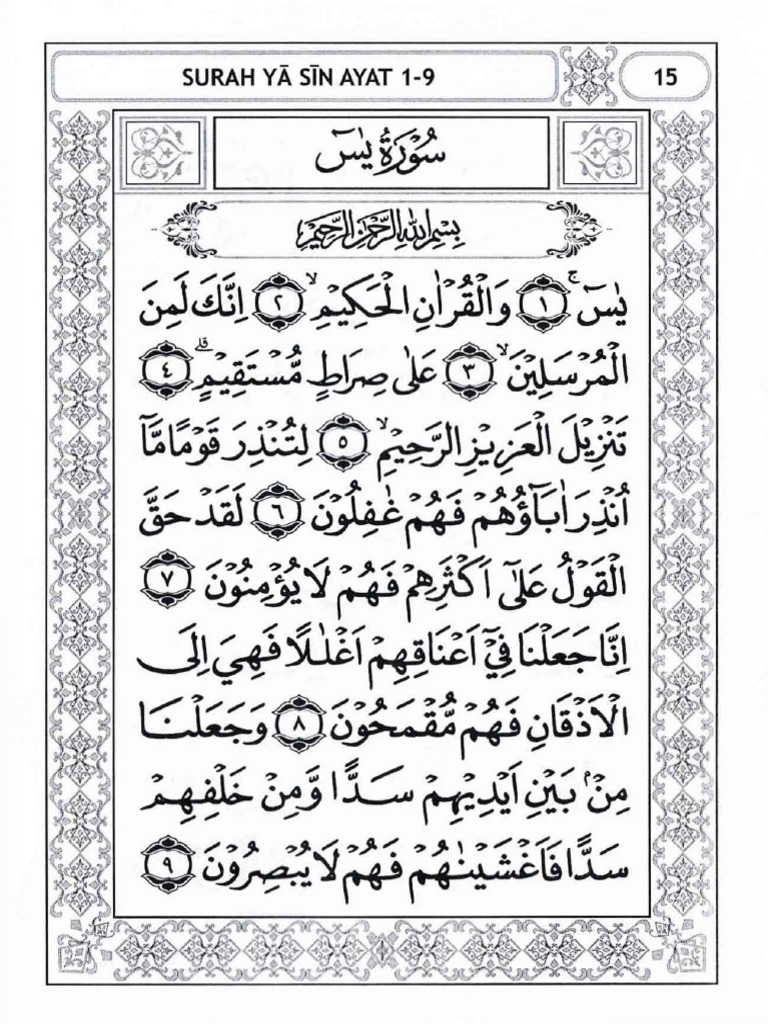 SURAH YĀ SĪN AYAT 1-9
15
سُوْرَةُ يٰسٓ
بِسْمِ اللّٰهِ الرَّحْمٰنِ الرَّحِيْمِ
يٰسٓ ۚ ﴿١﴾ وَالْقُرْاٰنِ الْحَكِيْمِ ۙ ﴿٢﴾ اِنَّكَ لَمِنَ
الْمُرْسَلِيْنَ ۙ ﴿٣﴾ عَلٰى صِرَاطٍ مُّسْتَقِيْمٍ ۗ ﴿٤﴾
تَنْزِيْلَ الْعَزِيْزِ الرَّحِيْمِ ۙ ﴿٥﴾ لِتُنْذِرَ قَوْمًا مَّآ
اُنْذِرَ اٰبَآؤُهُمْ فَهُمْ غٰفِلُوْنَ ﴿٦﴾ لَقَدْ حَقَّ
الْقَوْلُ عَلٰٓى اَكْثَرِهِمْ فَهُمْ لَا يُؤْمِنُوْنَ ﴿٧﴾
اِنَّا جَعَلْنَا فِيْٓ اَعْنَاقِهِمْ اَغْلٰلًا فَهِيَ اِلَى
الْاَذْقَانِ فَهُمْ مُّقْمَحُوْنَ ﴿٨﴾ وَجَعَلْنَا
مِنْۢ بَيْنِ اَيْدِيْهِمْ سَدًّا وَّمِنْ خَلْفِهِمْ
سَدًّا فَاَغْشَيْنٰهُمْ فَهُمْ لَا يُبْصِرُوْنَ ﴿٩﴾